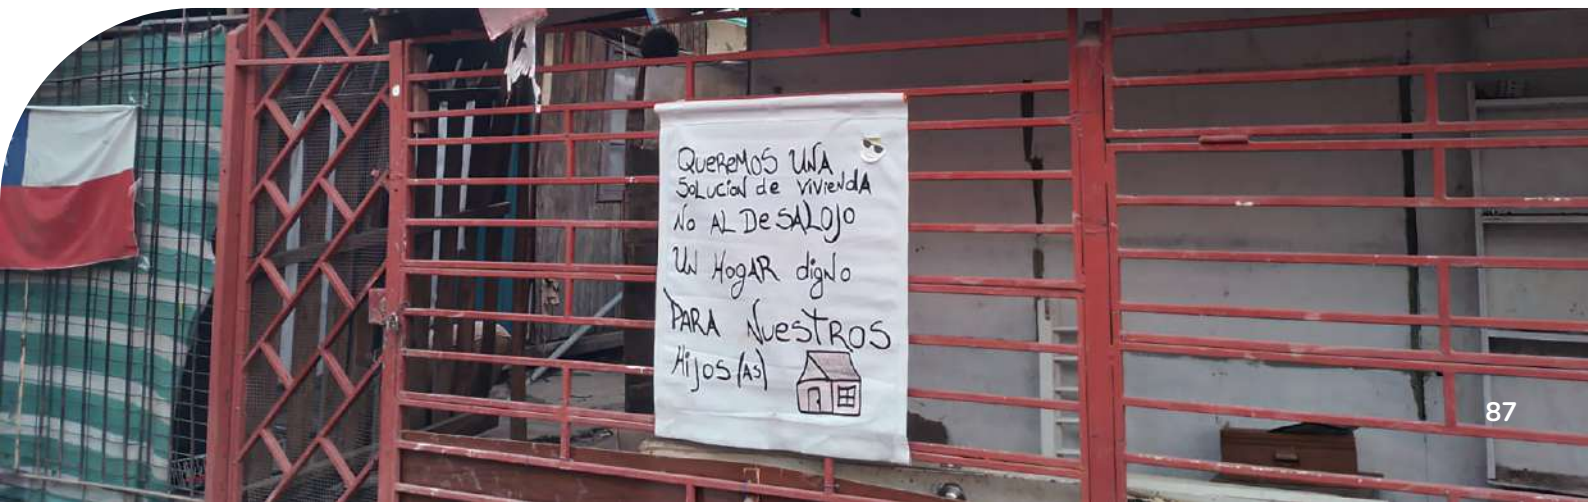 QUEREMOS UNA
SOLUCION de VIVIENDA
NO AL DESALOJO
UN HOGAR digNo
PARA NUESTROS
HIJOS (AS)
87